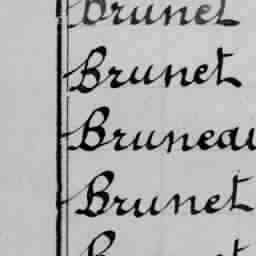 Brunet
Brunet
Bruneau
Brunet